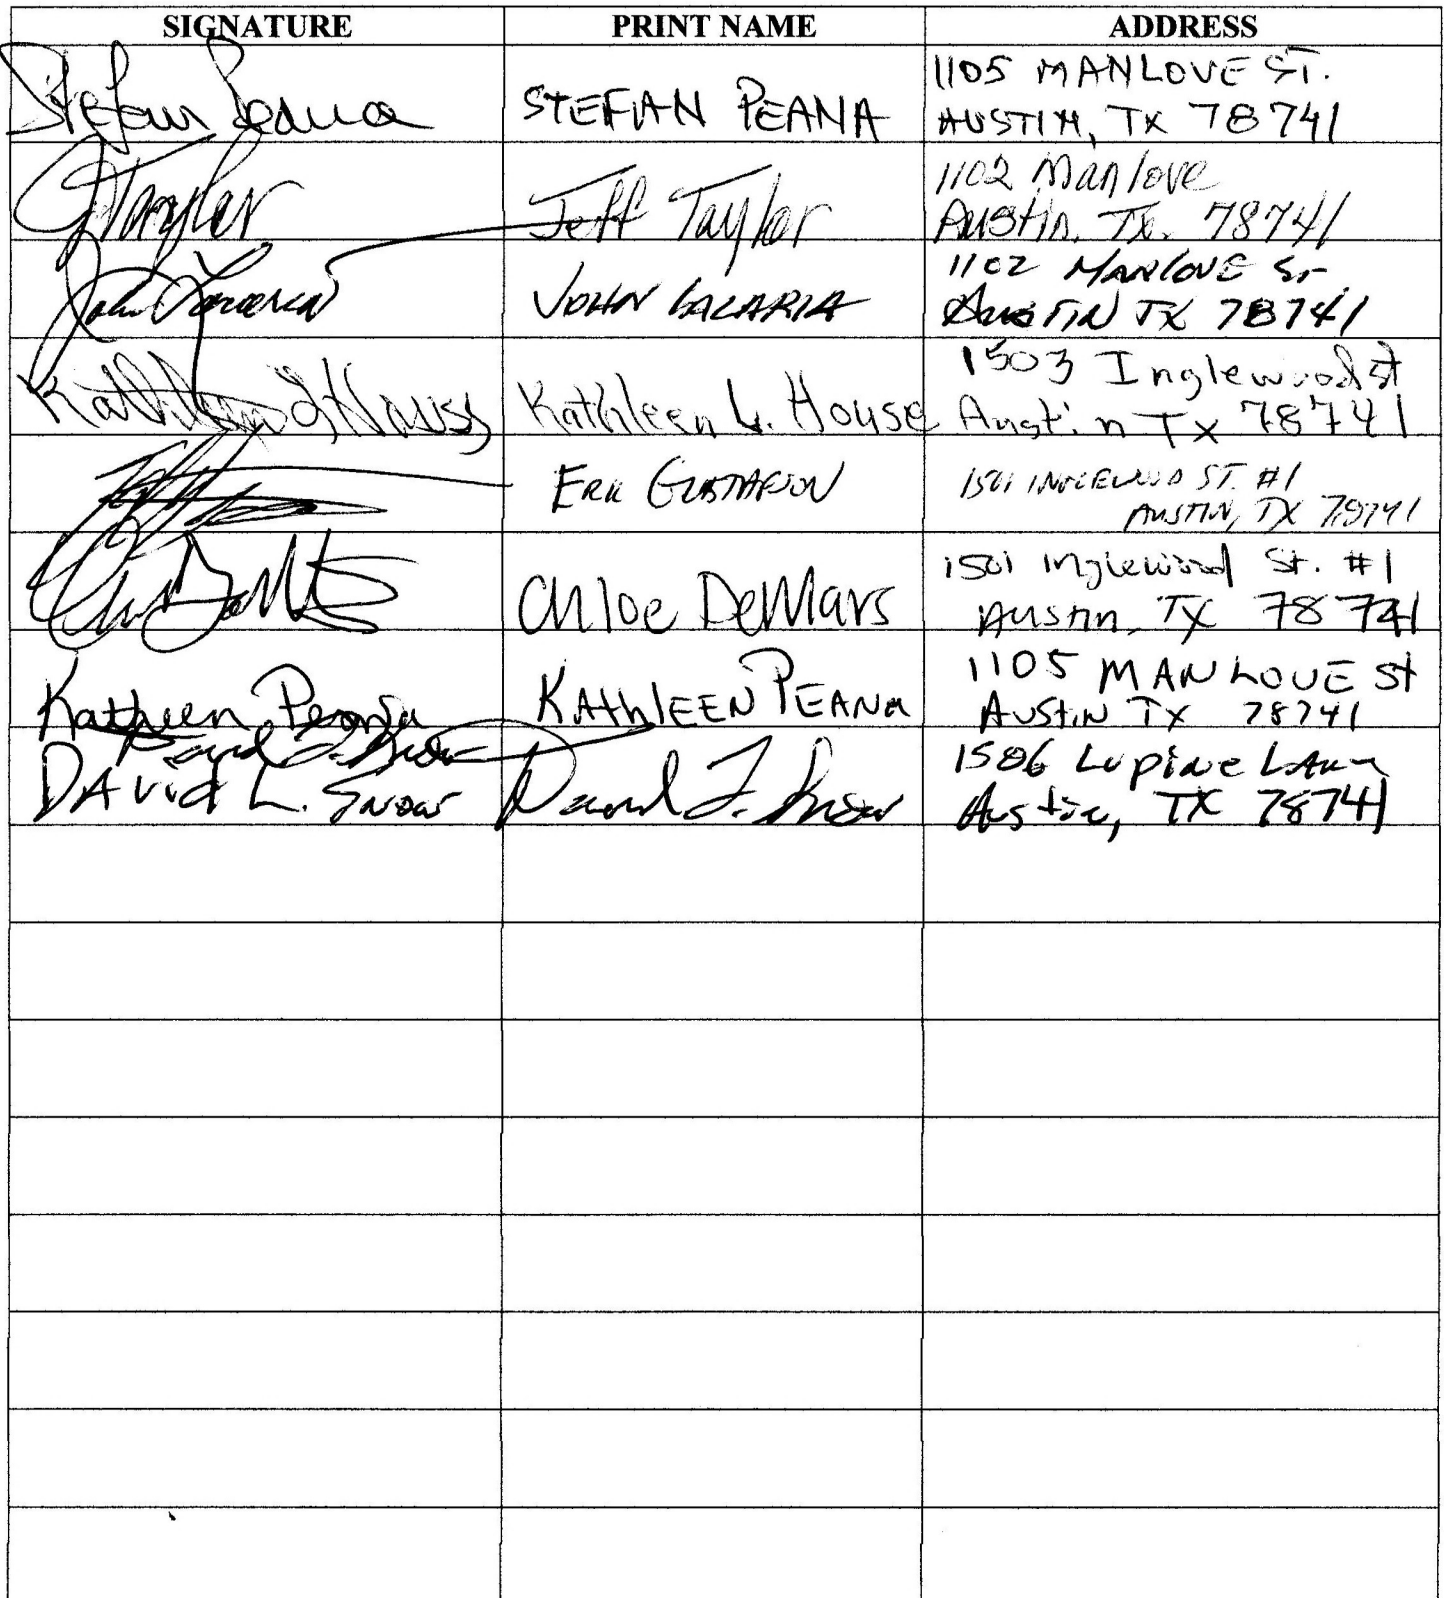 SIGNATURE PRINT NAME ADDRESS
Stefan Peana STEFAN PEANA 1105 MANLOVE ST.
AUSTIN, TX 78741
JTaylor Jeff Taylor 1102 Manlove
Austin, TX. 78741
John JOHN 1102 MANLOVE St
AUSTIN TX 78741
Kathleen L. House 1503 Inglewood st
Austin Tx 78741
ERIK GUSTAFSON 1501 INGLEWOOD ST. #1
AUSTIN, TX 78741
Chloe DeMars 1501 Inglewood St. #1
Austin, TX 78741
Kathleen Peana KAthLEEN PEANA 1105 MANLOVE St
AUStiN TX 78741
David L. Snow
DAvid L. Snow David L. Snow 1506 Lupine Lane
Austin, TX 78741